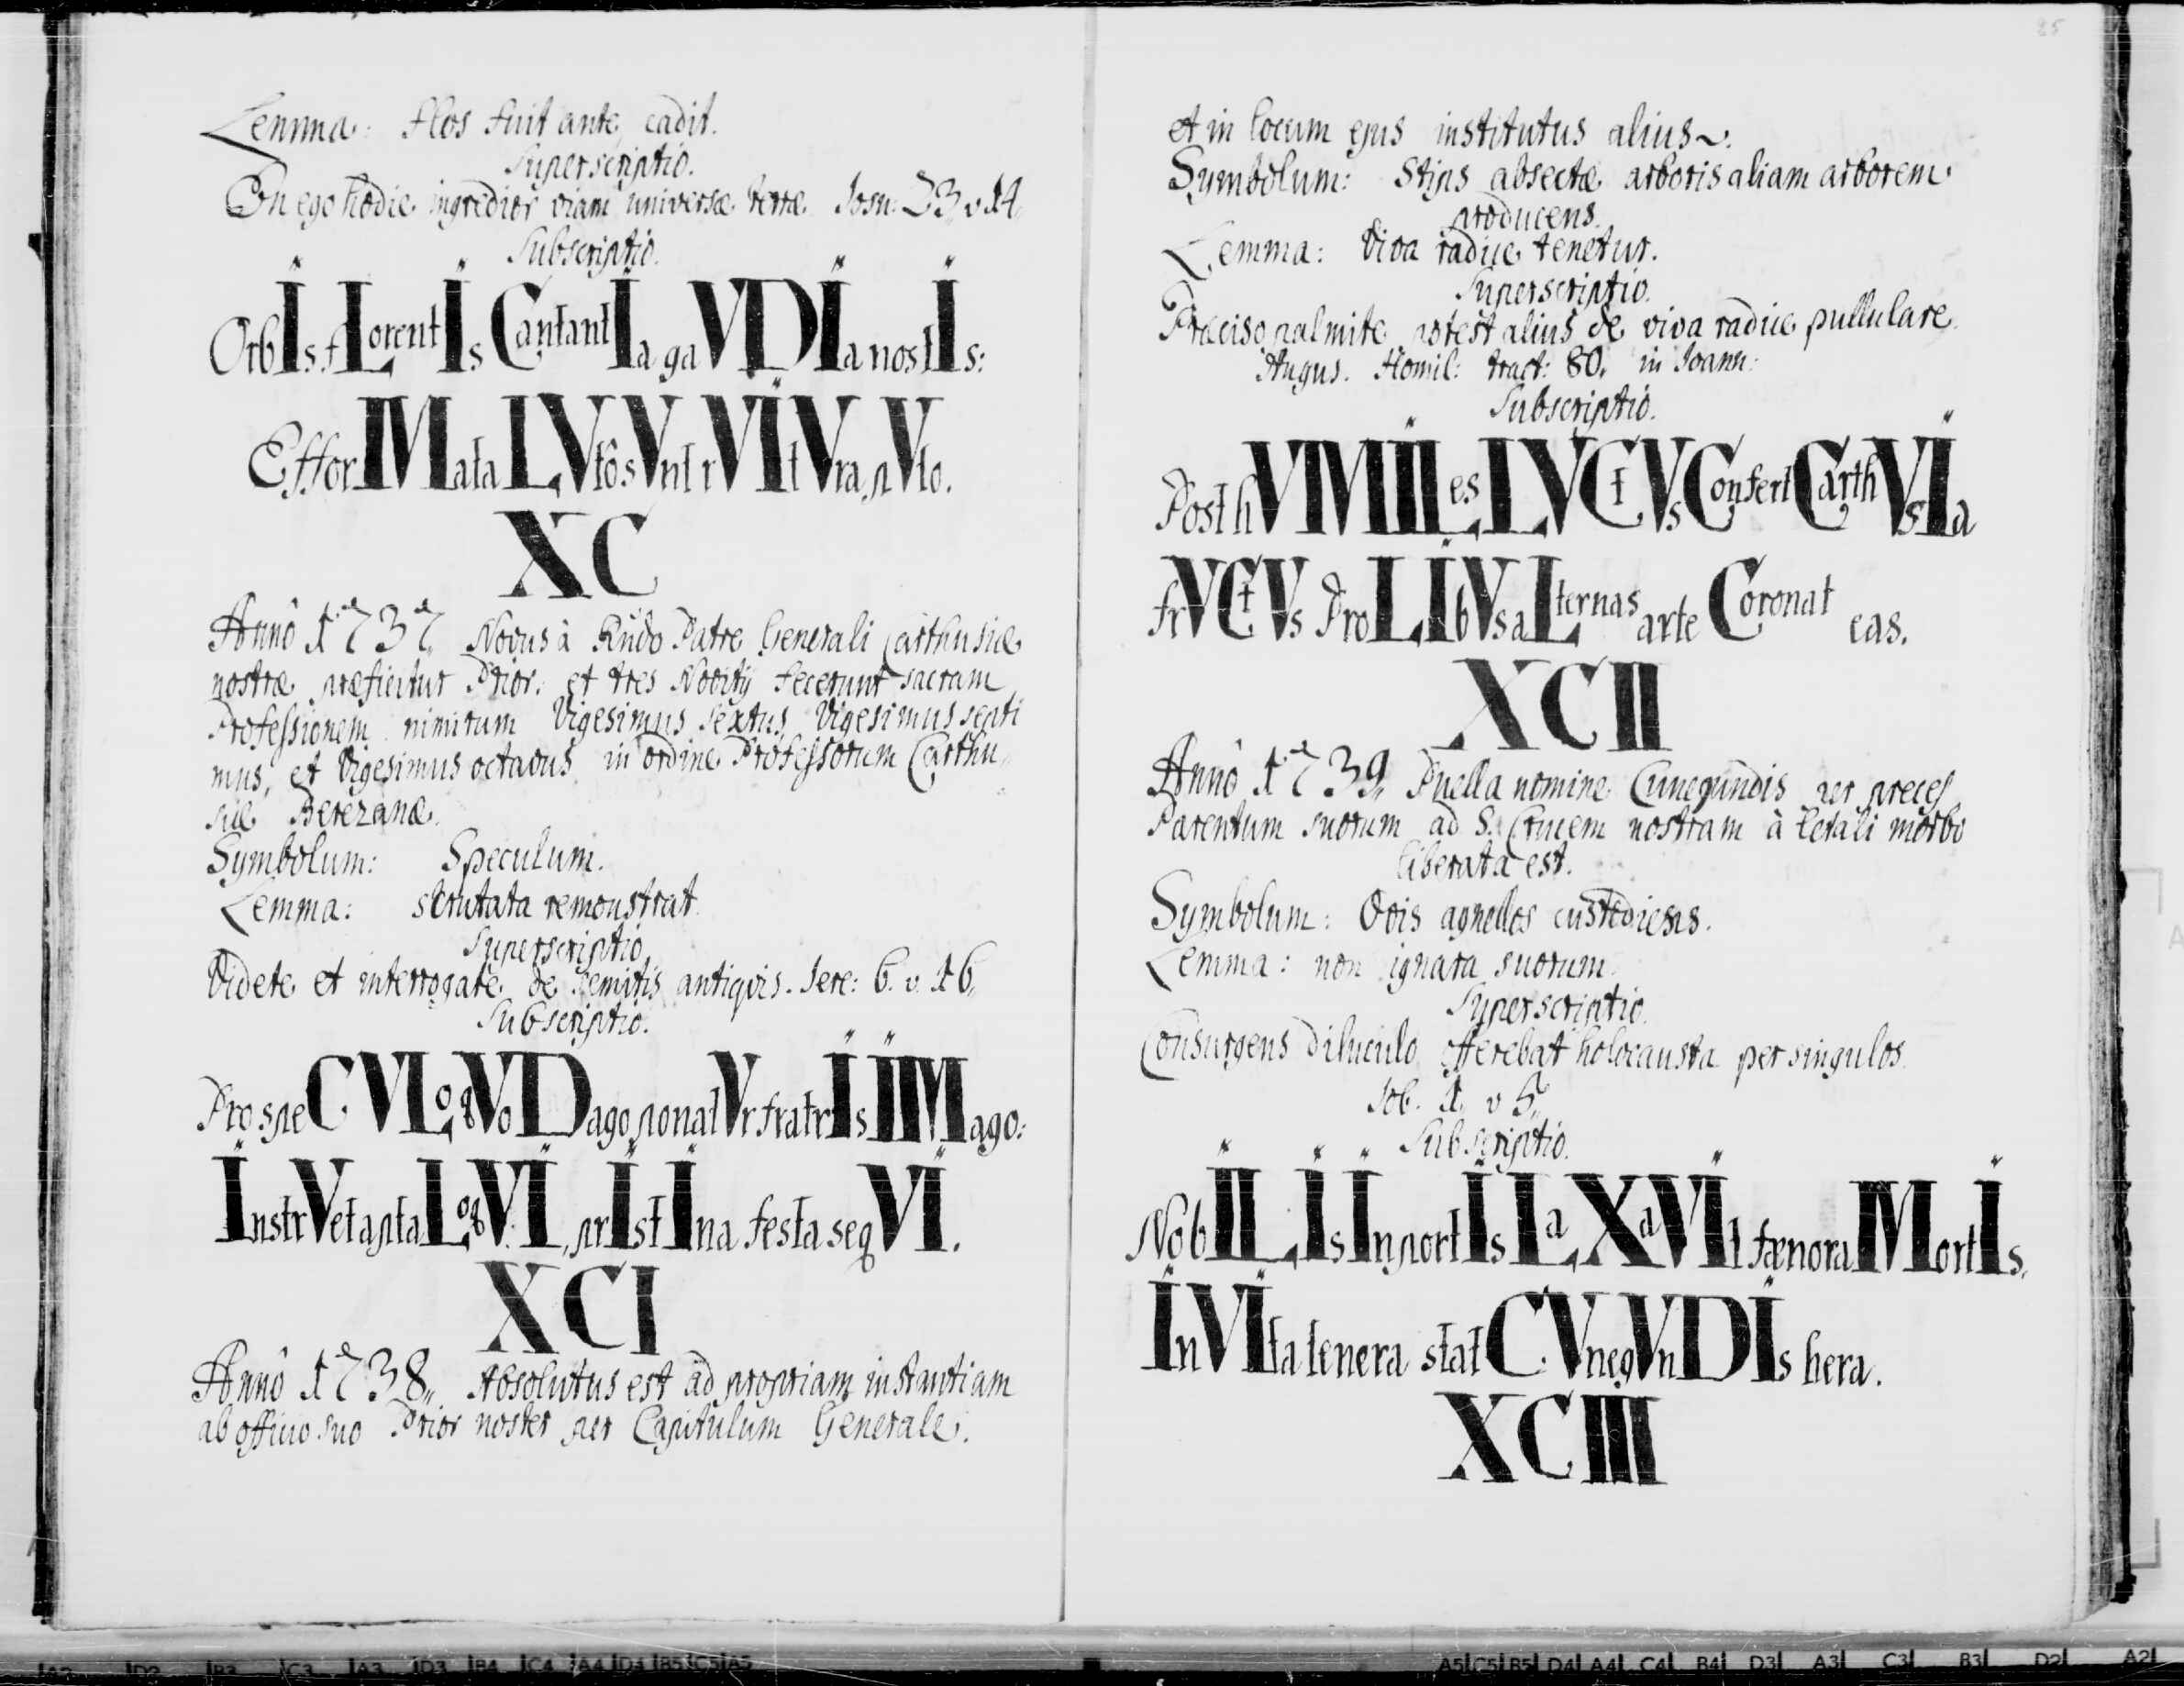 Lemma: Flos fuit ante, cadit.
Superscriptio.
En ego hodie ingredior viam universæ terræ. Josu: 23 v 14.
Subscriptio.
OrbIs fLorentIs CantantIa gaVDIa nostIs:
EfforMata LVtô sVnt rVIt Vra pVto.
XC
Annô 1737. Novus à Rñdo Patre Generali Carthusiæ
nostræ præficitur Prior: et tres Novitij fecerunt sacram
Professionem nimirum Vigesimus sextus, Vigesimus septi
mus, et Vigesimus octavus in ordine Professorum Carthu,
siæ Berezanæ.
Symbolum: Speculum.
Lemma: scrutata remonstrat.
Superscriptio
Videte et interrogate de semitis antiqvis. Jere: 6. v. 16.
Subscriptio.
Pro speCVLo qVo Dago ponatVr fratrIs IMago:
InstrVet apta LoqVI, prIstIna festa seqVI.
XCI
Annô 1738,, Absolutus est ad propriam instantiam
ab officio suo Prior noster per Capitulum Generale.
85
et in locum ejus institutus alius.
Symbolum: Stips absectæ arboris aliam arborem
producens.
Lemma: Viva radice tenetur.
Superscriptio.
Præciso palmite potest alius de viva radice pullulare.
Augus. Homil: tract: 80. in Joann:
Subscriptio.
Post hVMILes LVCtVs Confert CarthVsIa
frVCtVs ProLIbVs aLternas arte Coronat eas.
XCII
Annô 1739,, Puella nomine Cunegundis per preces
Parentum suorum ad S. Crucem nostram à letali morbo
liberata est.
Symbolum: Ovis agnellos custodiens.
Lemma: non ignara suorum.
Superscriptio.
Consurgens diluculo offerebat holocausta per singulos.
Job. 1. v 5,,
Subscriptio.
NobILIs In portIs LaXaVIt fænora MortIs.
In VIta tenera stat CVnegVnDIs hera.
XCIII